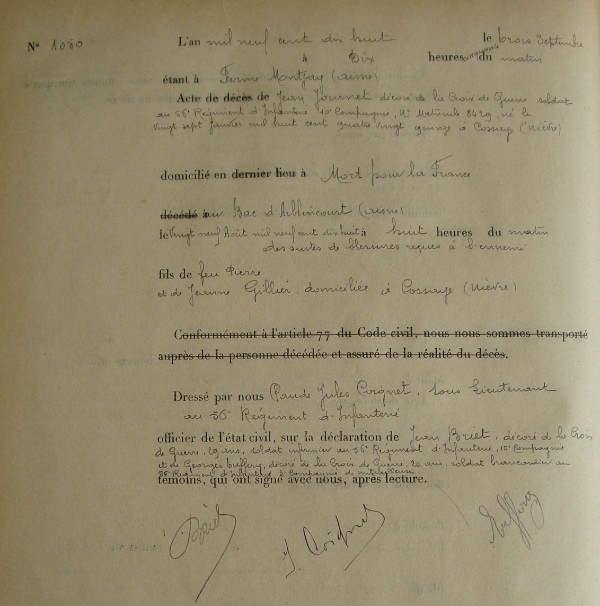 N° 1080
L'an mil neuf cent dix huit le trois Septembre
à Dix heures du matin
étant à Ferme Montjay (aisne)
Acte de décès de Jean Journet décoré de la Croix de Guerre soldat
au 56e Régiment d'Infanterie 10e Compagnie, N° Matricule 8429, né le
Vingt sept janvier mil huit cent quatre vingt quinze à Cossaye (Nièvre)
domicilié en dernier lieu à Mort pour la France
décédé à au Bac d'Arblincourt (aisne)
le Vingt neuf Août mil neuf cent dix huit à huit heures du matin
des suites de blessures reçues à l'ennemi
fils de feu Pierre
et de Jeanne Gillier, domiciliée à Cossaye (Nièvre)
Conformément à l'article 77 du Code civil, nous nous sommes transporté
auprès de la personne décédée et assuré de la réalité du décès.
Dressé par nous Jules Coignet, Sous Lieutenant
au 56e Régiment d'Infanterie
officier de l'état civil, sur la déclaration de Jean Briet, décoré de la Croix
de Guerre, 29 ans, soldat infirmier au 56e Régiment d'Infanterie, 10e Compagnie
et de Georges décoré de la Croix de Guerre, 20 ans, soldat brancardier au
56e Régiment d'Infanterie Compagnie de mitrailleuses
témoins, qui ont signé avec nous, après lecture.
Briet
J. Coignet